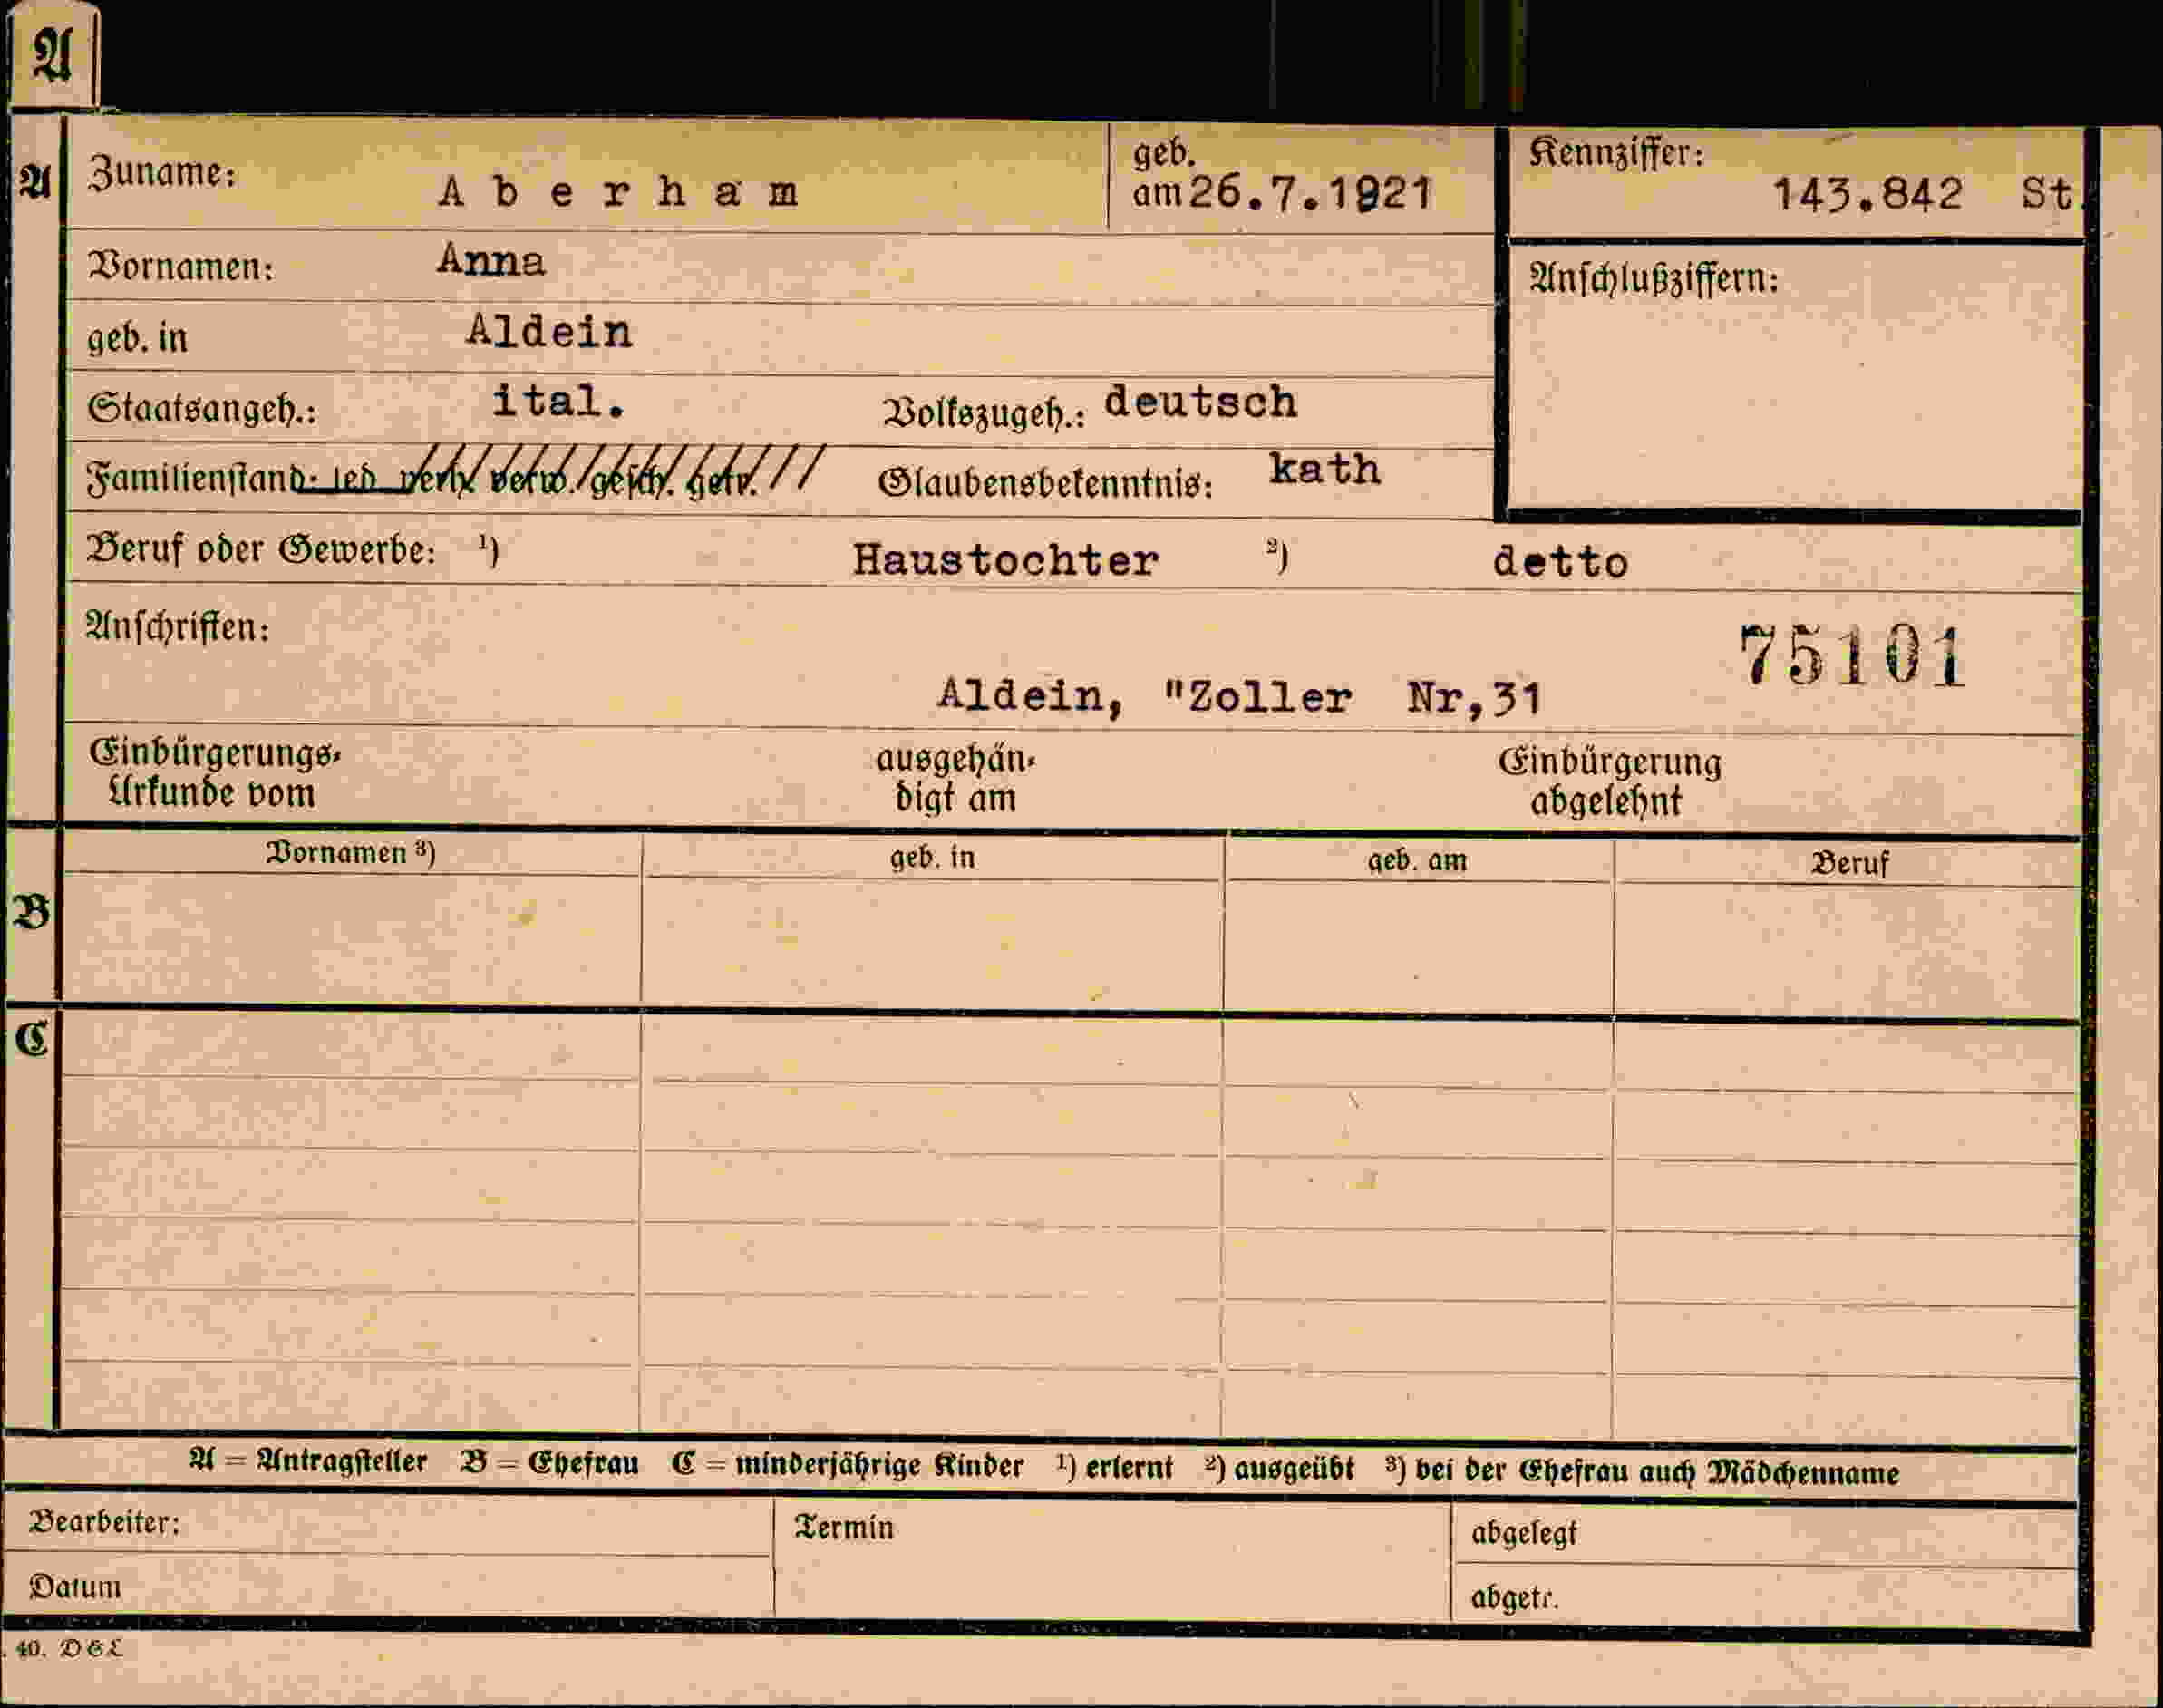 A
A Zuname: Aberham geb. am 26.7.1921 Kennziffer: 143.842 St
Vornamen: Anna Anschlußziffern:
geb. in Aldein
Staatsangeh.: ital. Volkszugeh.: deutsch
Familienstand: led verh. verw. gesch. getr. Glaubensbekenntnis: kath
Beruf oder Gewerbe: ¹) Haustochter ²) detto
Anschriften: 75101
Aldein, "Zoller Nr,31
Einbürgerungs- ausgehän- Einbürgerung
Urkunde vom digt am abgelehnt
Vornamen ³) geb. in geb. am Beruf
B
C
A = Antragsteller B = Ehefrau C = minderjährige Kinder ¹) erlernt ²) ausgeübt ³) bei der Ehefrau auch Mädchenname
Bearbeiter: Termin abgelegt
Datum abgetr.
. 40. D&L